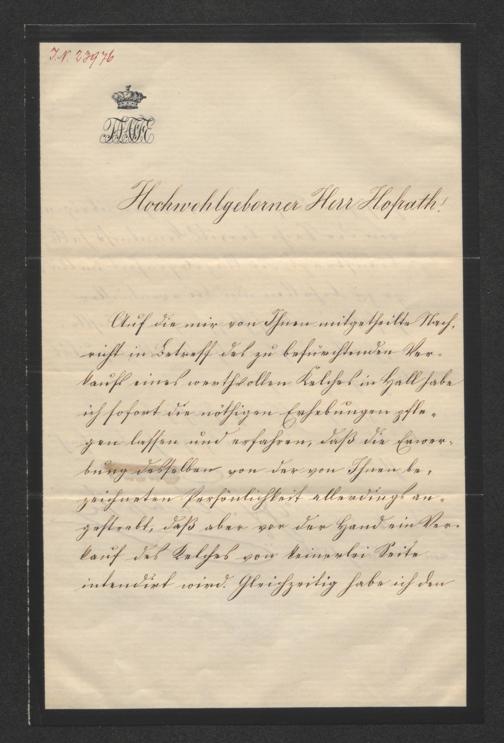 J.N. 23976
Hochwohlgeborner Herr Hofrath!
Auf die mir von Ihnen mitgetheilte Nach,
richt in Betreff des zu befürchtenden Ver-
kaufs eines werthvollen Kelches in Hall habe
ich sofort die nöthigen Erhebungen pfle-
gen lassen und erfahren, daß die Erwer-
bung desselben von der von Ihnen be,
zeichneten Persönlichkeit allerdings an-
gestrebt, daß aber vor der Hand ein Ver-
kauf des Kelches von keinerlei Seite
intendirt wird. Gleichzeitig habe ich den